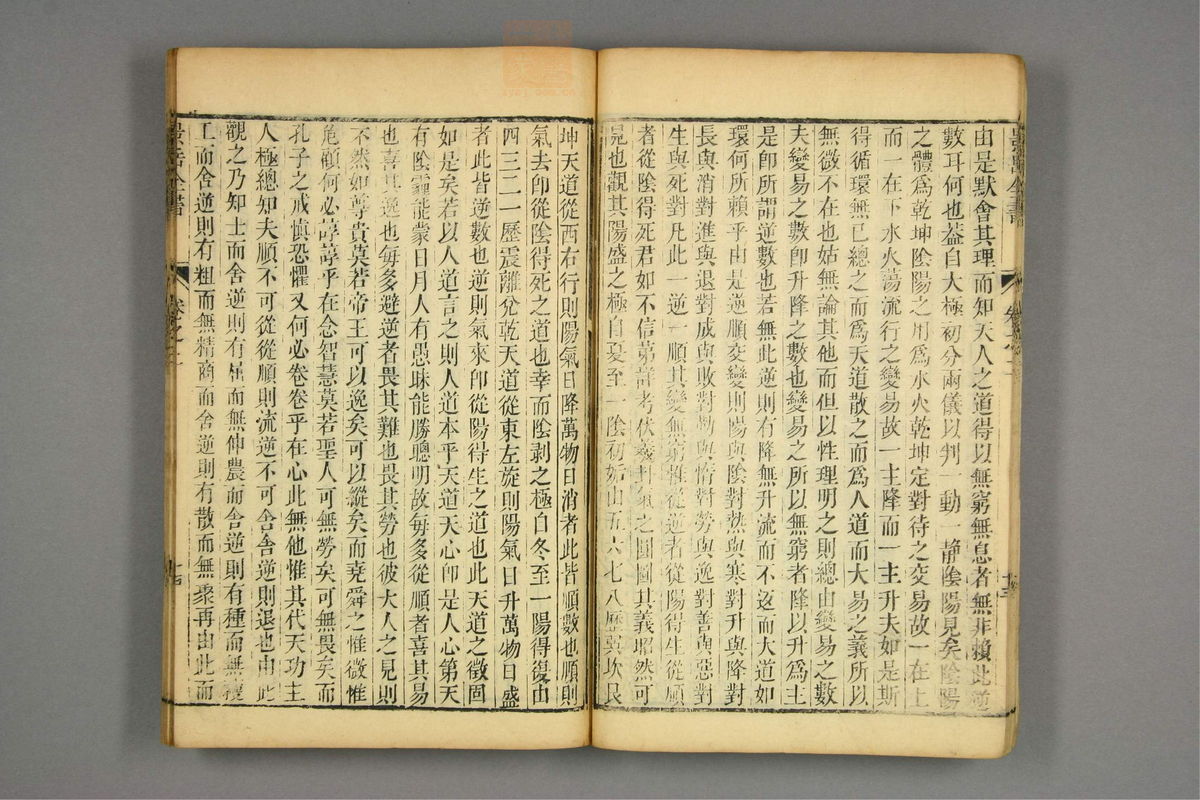 由是默會其理而知天人之道得以無窮無息者無非賴此逆
數耳何也葢自太極初分兩儀以判一動一靜陰陽見矣陰陽
之體爲乾坤陰陽之用爲水火乾坤定對待之交易故一在上
而一在下水火蕩流行之變易故一主降而一主升夫如是斯
得循環無已總之而爲天道散之而爲人道而大易之義所以
無微不在也姑無論其他而但以性理明之則總由變易之數
夫變易之數卽升降之數也變易之所以無窮者降以升爲主
是卽所謂逆數也若無此逆則有降無升流而不返而大道如
環何所賴乎由是逆順交變則陽與陰對熱與寒對升與降對
長與消對進與退對成與敗對勤與惰對勞與逸對善與惡對
生與死對凡此一逆一順其變無窮惟從逆者從陽得生從順
者從陰得死君如不信第詳考伏羲卦氣之圓圖其義昭然可
見也觀其陽盛之極自夏至一陰初姤由五六七八歷巽坎艮
坤天道從西右行則陽氣日降萬物日消者此皆順數也順則
氣去卽從陰得死之道也幸而陰剥之極自冬至一陽得復由
四三二一歷震離兌乾天道從東左旋則陽氣日升萬物日盛
者此皆逆數也逆則氣來卽從陽得生之道也此天道之徵固
如是矣若以人道言之則人道本乎天道天心卽是人心第天
有陰霾能蒙日月人有愚昧能勝聰明故每多從順者喜其易
也喜其逸也每多避逆者畏其難也畏其勞也彼大人之見則
不然如尊貴莫若帝王可以逸矣可以縱矣而堯舜之惟微惟
危顧何必諄諄乎在念智慧莫若聖人可無勞矣可無畏矣而
孔子之戒慎恐懼又何必卷卷乎在心此無他惟其代天功主
人極總知夫順不可從從順則流逆不可舍舍逆則退也由此
觀之乃知士而舍逆則有屈而無伸農而舍逆則有種而無穫
工而舍逆則有粗而無精商而舍逆則有散而無聚再由此而
卷之二
十四